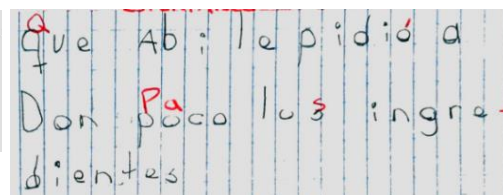 Que Abi le pidió a
Don Paco los ingre-
dientes